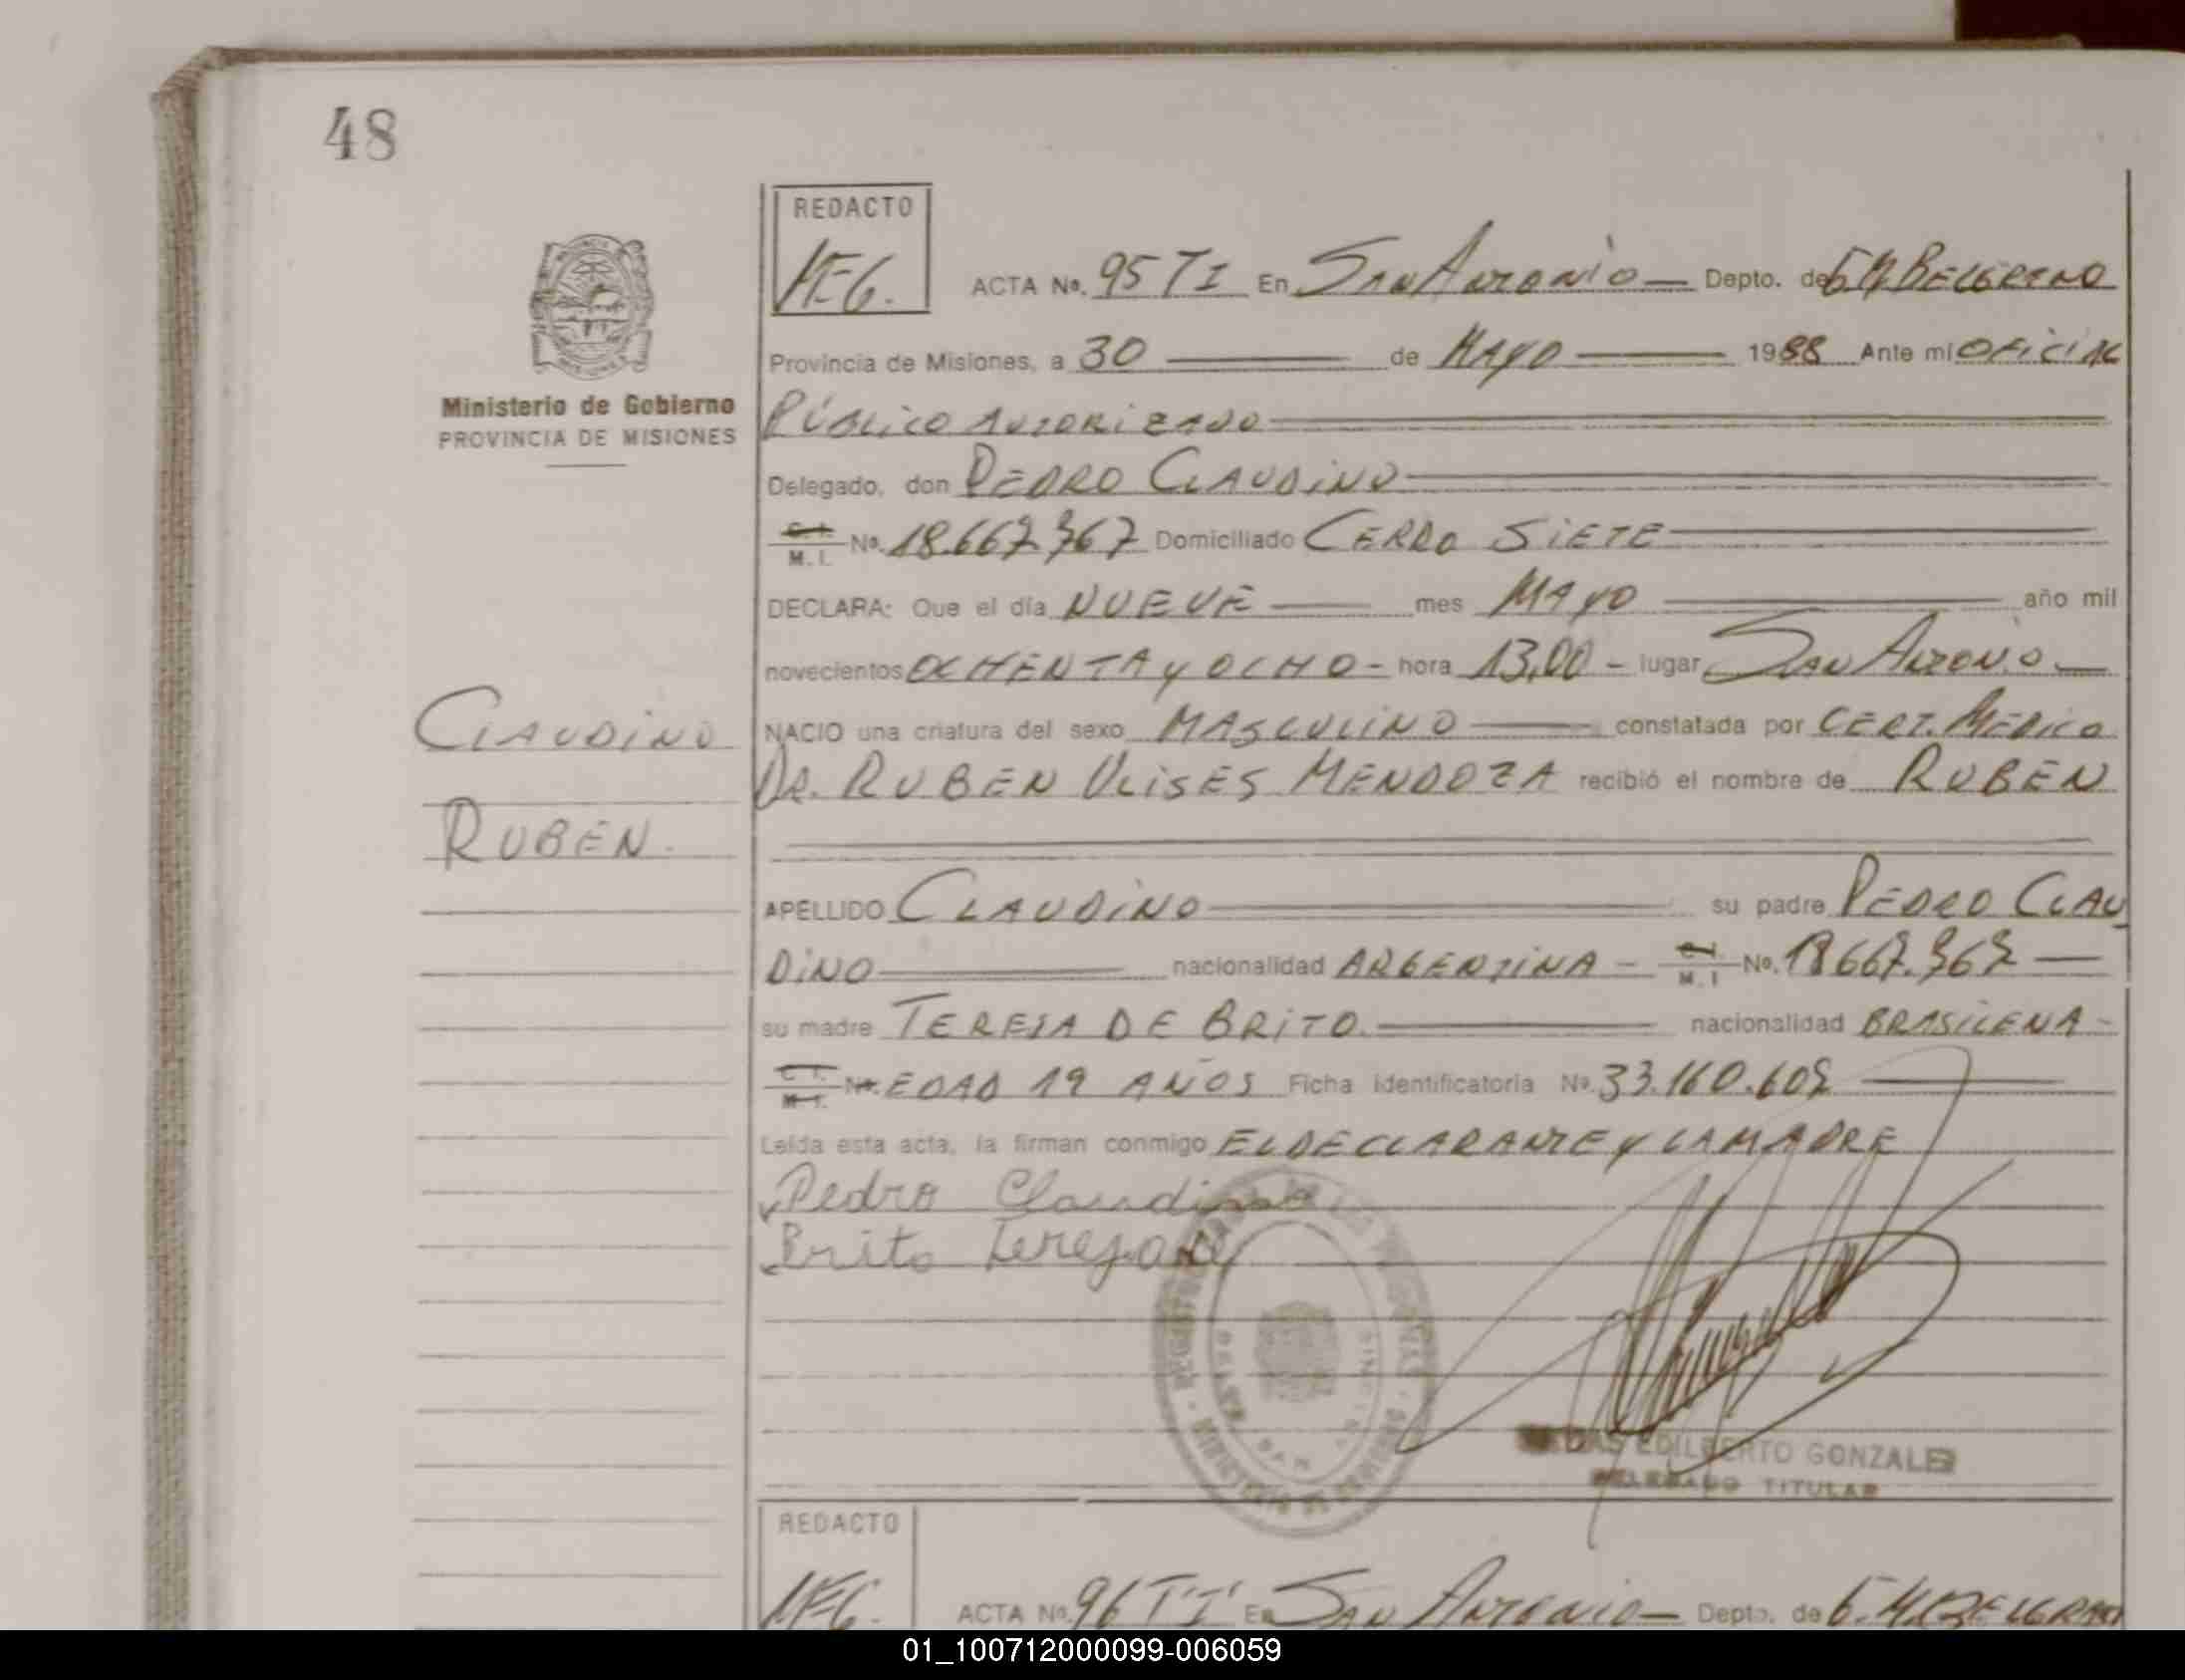 48
REDACTO
ACTA No. 95 TI En San Antonio Depto. de G. M. BELGRANO
Provincia de Misiones, a 30 de MAYO 1988 Ante mi OFICIAL
PÚBLICO AUTORIZADO
Ministerio de Gobierno
PROVINCIA DE MISIONES
Delegado, don PEDRO CLAUDINO
C. I.
M. I. No. 18.667.367 Domiciliado CERRO SIETE
DECLARA: Que el día NUEVE mes MAYO año mil
novecientos OCHENTA y OCHO - hora 13,00 - lugar San Antonio
CLAUDINO
NACIO una criatura del sexo MASCULINO constatada por CERT. MEDICO
DR. RUBEN ULISES MENDOZA recibió el nombre de RUBEN
RUBEN.
APELLIDO CLAUDINO su padre PEDRO CLAU
DINO nacionalidad ARGENTINA - M. I No. 18667.367
su madre TERESA DE BRITO. nacionalidad BRASILENA -
C. I.
M. I. No. EDAD 19 AÑOS Ficha identificatoria No. 33.160.602
Leída esta acta, la firman conmigo EL DECLARANTE y LA MADRE
Pedro Claudino
Brito Teresa de
EDILBERTO GONZALEZ
DELEGADO TITULAR
REDACTO
ACTA No. 96 TI En San Antonio Depto. de G. M. BELGRANO
01_100712000099-006059